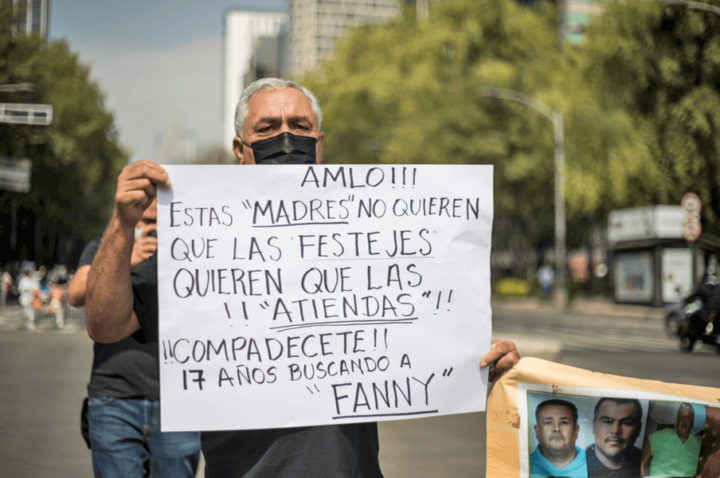 AMLO!!!
ESTAS "MADRES" NO QUIEREN
QUE LAS FESTEJES
QUIEREN QUE LAS
!! "ATIENDAS" !!
¡¡COMPADECETE!!
17 AÑOS BUSCANDO A
"FANNY"